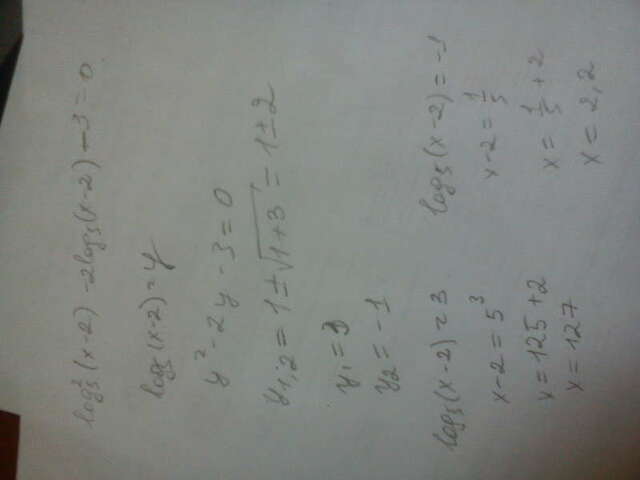 log₅²(x-2) - 2log₅(x-2) - 3 = 0
log₅(x-2) = y
y² - 2y - 3 = 0
y₁,₂ = 1 ± √1+3 = 1 ± 2
y₁ = 3
y₂ = -1
log₅(x-2) = 3
x-2 = 5³
x = 125 + 2
x = 127
log₅(x-2) = -1
x-2 = 1/5
x = 1/5 + 2
x = 2,2